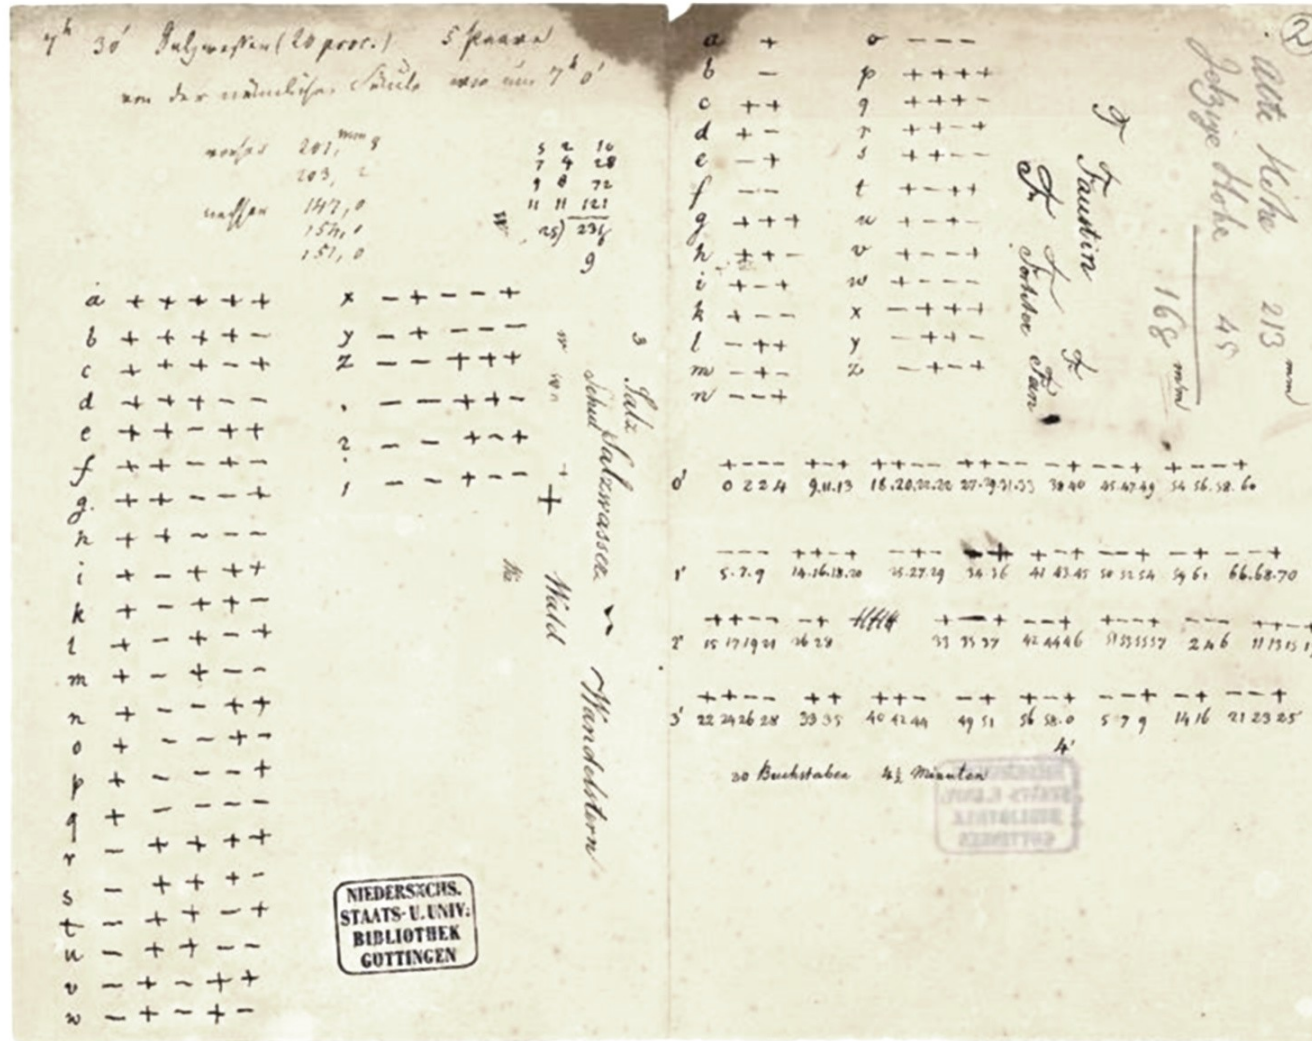 7h 30' Salzwasser (20 proc.) 5 Paare
von der nämlichen Säule wie um 7h 0'
vorher 201,mm8
203, 2
nachher 147,0
151,0
5 2 10
7 4 28
9 8 72
11 11 121
25) 231
9
a + + + + +
b + + + + -
c + + + - +
d + + + - -
e + + - + +
f + + - + -
g. + + - - +
h + + - - -
i + - + + +
k + - + + -
l + - + - +
m + - + - -
n + - - + +
o + - - + -
p + - - - +
q + - - - -
r - + + + +
s - + + + -
t - + + - +
u - + + - -
v - + - + +
w - + - + -
x - + - - +
y - + - - -
z - - + + +
. - - + + -
? - - + - +
! - - + - -
3
Salz
Schul Salzwasser.
Wandelstern
+ Wald
NIEDERSÄCHS.
STAATS- U. UNIV.
BIBLIOTHEK
GÖTTINGEN
2
a +
b -
c + +
d + -
e - +
f - -
g + + +
h + + -
i + - +
k + - -
l - + +
m - + -
n - - +
o - - -
p + + + +
q + + + -
r + + - +
s + + - -
t + - + +
u + - + -
v + - - +
w + - - -
x - + + +
y - + + -
z - + - +
F
Faustin
F F F
Alte Höhe 213 mm
Jetzige Höhe 45
168 mm
+--- +-+ ++-- ++-- -+ --+ +--+
0' 0 2 2 4 9.11.13 18.20.22.22 27.29.31.33 38 40 45.47.49 54 56.58.60
--- ++-+ --+- -+ +-+ --+ -+ ---+
1' 5.7.9 14.16.18.20 25.27.29 34.36 41 43.45 50 52 54 59 61 66.68.70
++-- -+ +-- --+ +--+ ---
2' 15 17 19 21 26 28 33 35 37 42 44 46 51 53 55 57 2 4 6 11 13 15
++-- ++ ++- -+ +-+ --+ -+ --+
3' 22 24 26 28 33 35 40 42 44 49 51 56 58.0 5 7 9 14 16 21 23 25
4'
30 Buchstaben 4½ Minuten